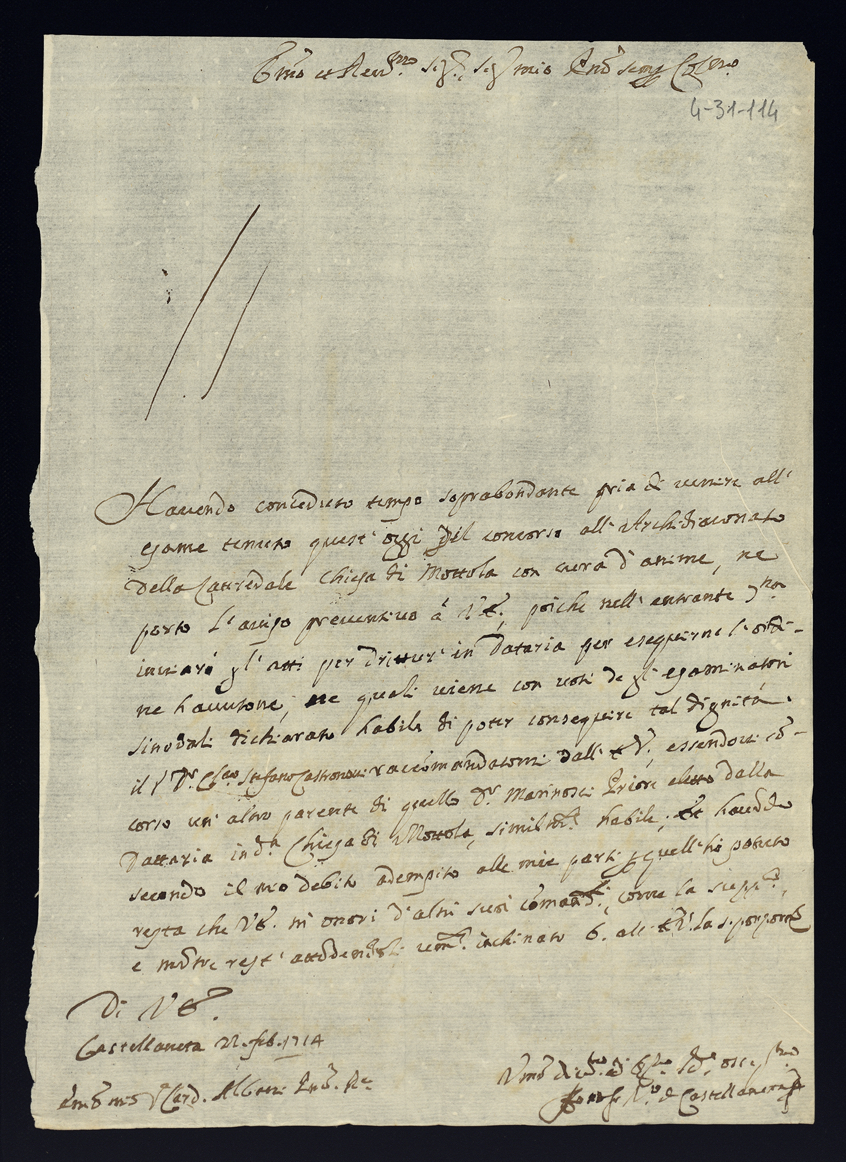 Em̃o et Rev.mo Sig.r Sig.r mio P̃rõn semp. Col.mo
4-31-114
Havendo conceduto tempo soprabondante pria di venire all'
esame tenuto quest'oggi del concorso all'Archidiaconato
della Cattredale Chiesa di Mottola con cura d'anime, ne
porto l'aviso preventivo à V.E., poiche nell'entrante
inviarò gl'atti per drittura in Dataria per eseguirne l'ordi-
ne havutone, ne quali viene con voti de gl'esaminatori
sinodali dichiarato habile di poter conseguire tal dignità
il Stefano Castronovi raccomandatomi dall'E.V., essendovi cõ-
corso un'altro parente di quello D.r Marinosci Priore eletto dalla
Dattaria in d.a Chiesa di Mottola, similm.e habile, et havendo
secondo il mio debito adempito alle mie parti quell'hò potuto
resta che V.E. m'onori d'altri suoi cõmandi, come la supp.co,
e mẽtre rest' attẽdendoli inchinato b. all'E.V. la s. porpora
Di V.E.
Castellaneta 22 feb. 1714
Em̃o mio S.r Card. Albani Rõ.
Vesc.o di Castellaneta